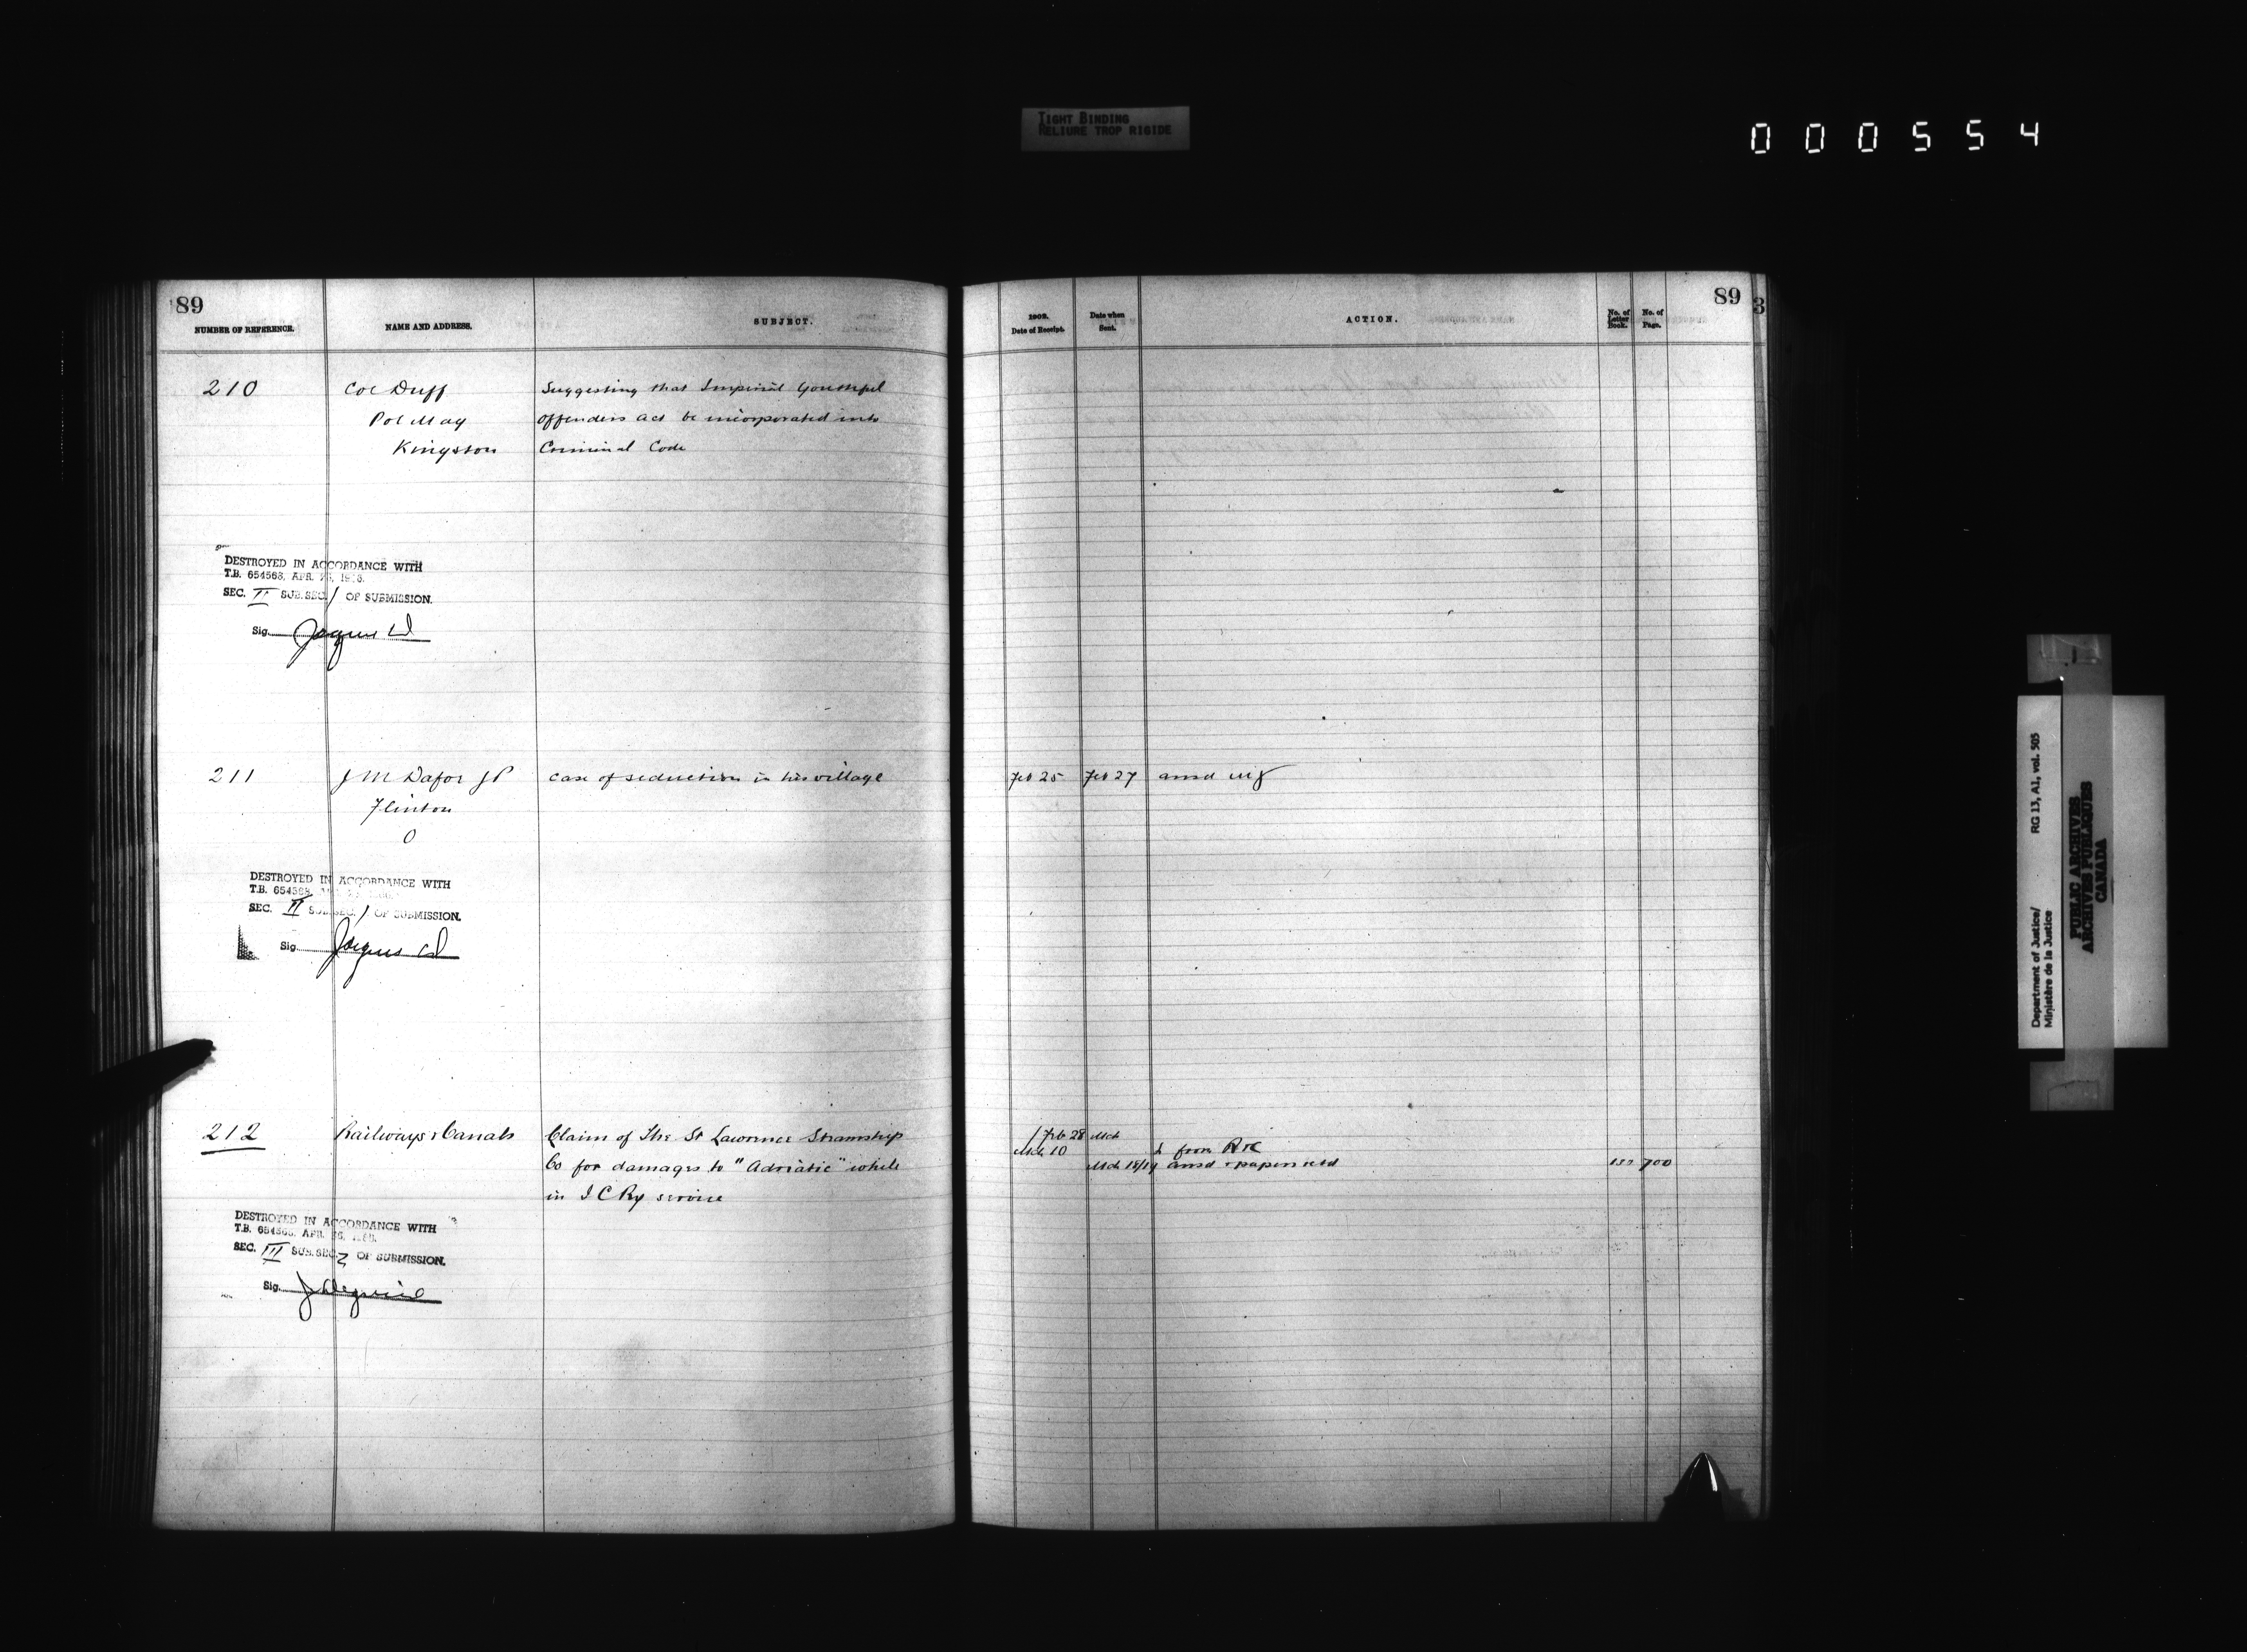 TIGHT BINDING
RELIURE TROP RIGIDE
000554
89
NUMBER OF REFERENCE.
NAME AND ADDRESS.
SUBJECT.
210
Col Duff
Suggesting that Imperial Youthful
Pol Mag
Offenders Act be incorporated into
Kingston
Criminal Code
DESTROYED IN ACCORDANCE WITH
T.B. 654563, APR.
SEC. II SUB.SEC. 1 OF SUBMISSION.
Sig.
211
J M Dafoe JP
Case of seduction in his village
Flinton
O
DESTROYED IN ACCORDANCE WITH
T.B.
SEC. II SUB.SEC. 1 OF SUBMISSION.
Sig.
212
Railways & Canals
Claim of The St Lawrence Steamship
Co for damages to "Adriatic" while
in I C Ry service
DESTROYED IN ACCORDANCE WITH
T.B. APR.
SEC. III SUB.SEC. 2 OF SUBMISSION.
Sig.
89
1902.
Date of Receipt.
Date when
Sent.
ACTION.
No. of
Letter
Book.
No. of
Page.
3
Feb 25 Feb 27 ansd
Feb 28 Mch
Mch 10 L from
Mch 18/19 ansd & papers retd 700
Department of Justice/
Ministère de la Justice
RG 13, A1, vol. 505
PUBLIC ARCHIVES
ARCHIVES PUBLIQUES
CANADA